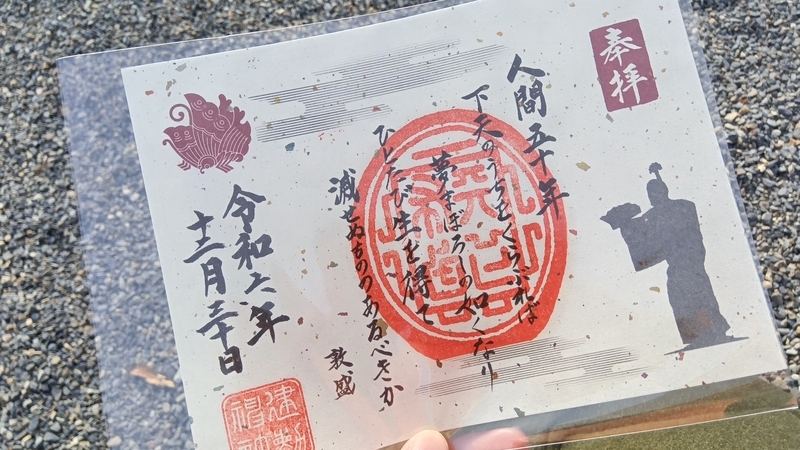 奉拝
人間五十年
下天のうちをくらぶれば
夢まぼろしの如くなり
ひとたび生を得て
滅せぬもののあるべきか
敦盛
令和六年
十二月三十日
建勲